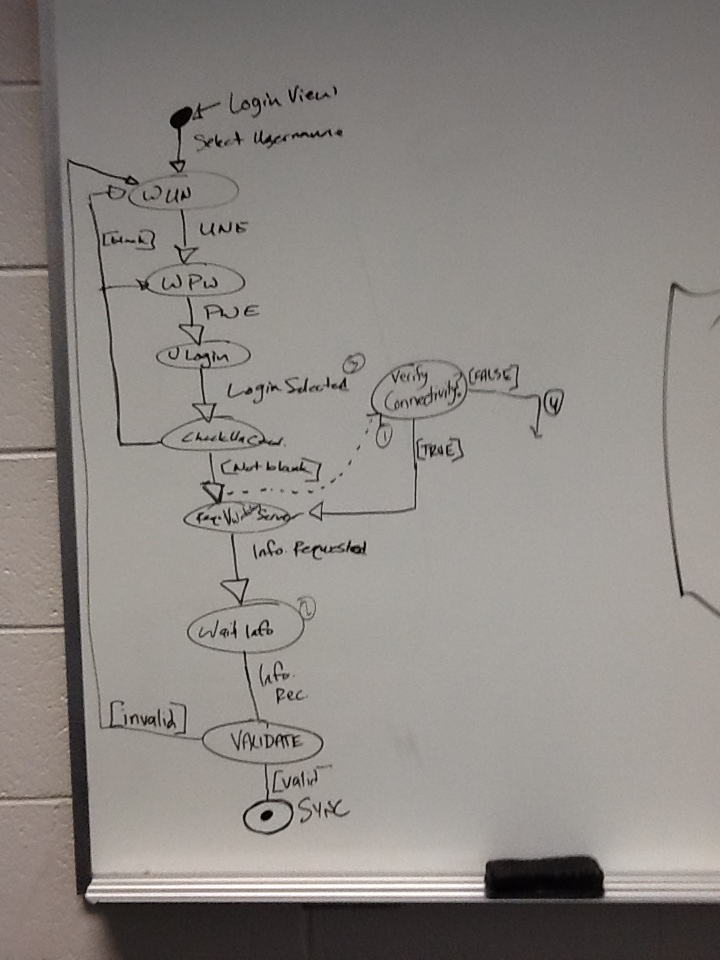 Login View
Select Username
WUN
UNE
WPW
PWE
ULogin
Login Selected
Verify
Connectivity?
[FALSE]
4
1
[TRUE]
[Not blank]
Server
Info. Requested
Wait Info
Info.
Rec.
[invalid]
VALIDATE
[valid
SYNC